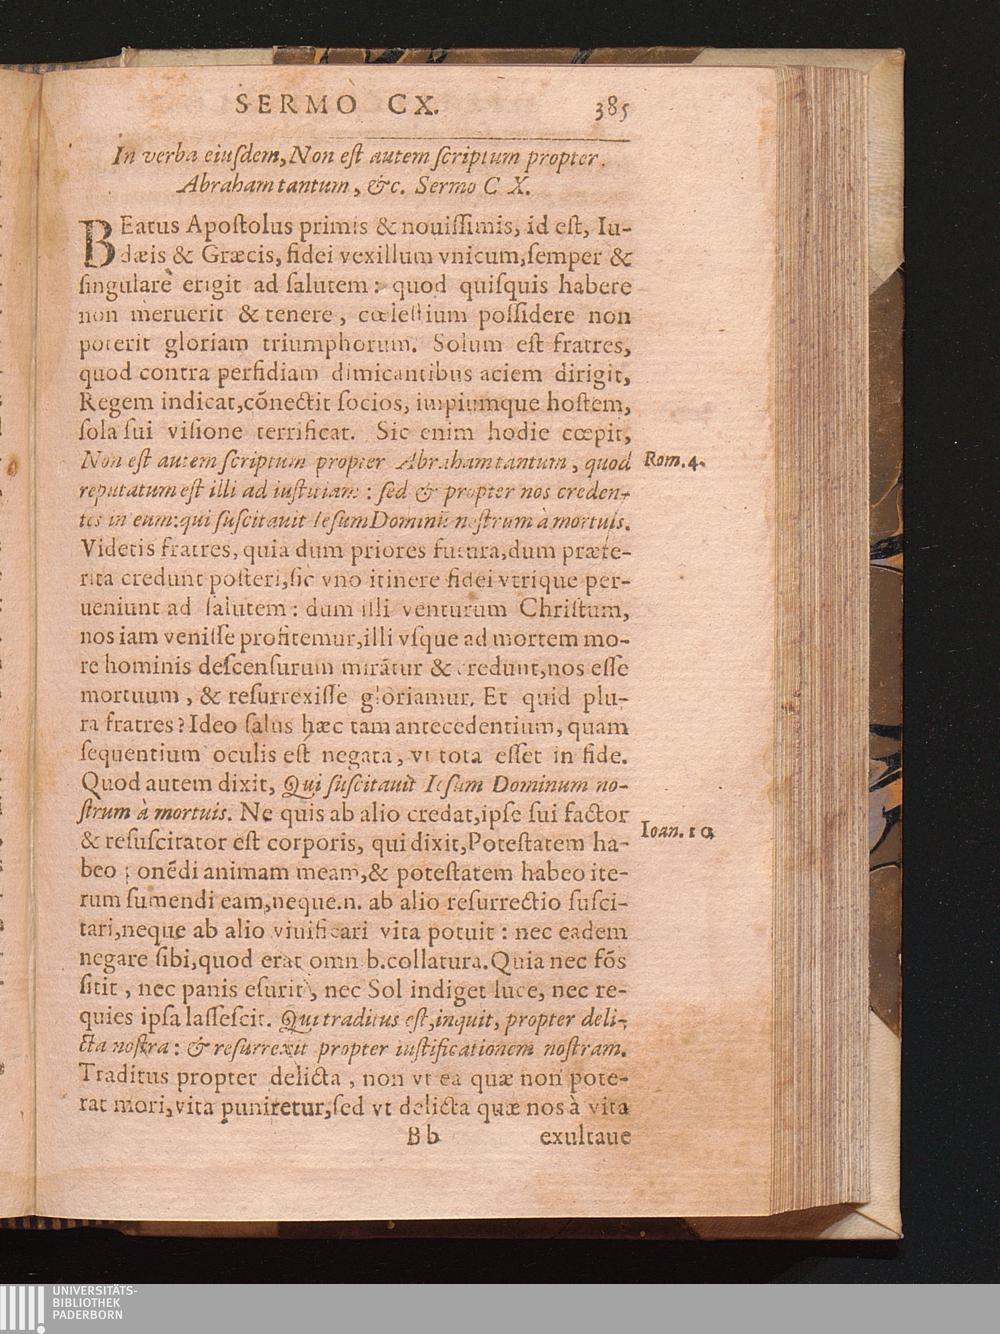 SERMO CX. 385
In verba eiuſdem, Non eſt autem ſcriptum propter
Abraham tantum, &c. Sermo C X.
BEatus Apoſtolus primis & nouiſſimis, id eſt, Iu-
dæis & Græcis, fidei vexillum vnicum, ſemper &
ſingulare erigit ad ſalutem: quod quiſquis habere
non meruerit & tenere, cœleſtium poſſidere non
poterit gloriam triumphorum. Solum eſt fratres,
quod contra perfidiam dimicantibus aciem dirigit,
Regem indicat, cõnectit ſocios, impiumque hoſtem,
ſola ſui viſione terrificat. Sic enim hodie cœpit,
Non eſt autem ſcriptum propter Abraham tantum, quod Rom. 4.
reputatum eſt illi ad iuſtitiam: ſed & propter nos creden-
tes in eum: qui ſuſcitauit Ieſum Dominũ noſtrum à mortuis.
Videtis fratres, quia dum priores futura, dum præte-
rita credunt poſteri, ſic vno itinere fidei vtrique per-
ueniunt ad ſalutem: dum illi venturum Chriſtum,
nos iam veniſſe profitemur, illi vſque ad mortem mo-
re hominis deſcenſurum mirãtur & credunt, nos eſſe
mortuum, & reſurrexiſſe gloriamur. Et quid plu-
ra fratres? Ideo ſalus hæc tam antecedentium, quam
ſequentium oculis eſt negata, vt tota eſſet in fide.
Quod autem dixit, Qui ſuſcitauit Ieſum Dominum no-
ſtrum à mortuis. Ne quis ab alio credat, ipſe ſui factor
& reſuſcitator eſt corporis, qui dixit, Poteſtatem ha- Ioan. 10.
beo ponẽdi animam meam, & poteſtatem habeo ite-
rum ſumendi eam, neque.n. ab alio reſurrectio ſuſci-
tari, neque ab alio viuificari vita potuit: nec eadem
negare ſibi, quod erat omnib. collatura. Quia nec fõs
ſitit, nec panis eſurit, nec Sol indiget luce, nec re-
quies ipſa laſſeſcit. Qui traditus eſt, inquit, propter deli-
cta noſtra: & reſurrexit propter iuſtificationem noſtram.
Traditus propter delicta, non vt ea quæ non pote-
rat mori, vita puniretur, ſed vt delicta quæ nos à vita
B b exultaue
UNIVERSITÄTS-
BIBLIOTHEK
PADERBORN